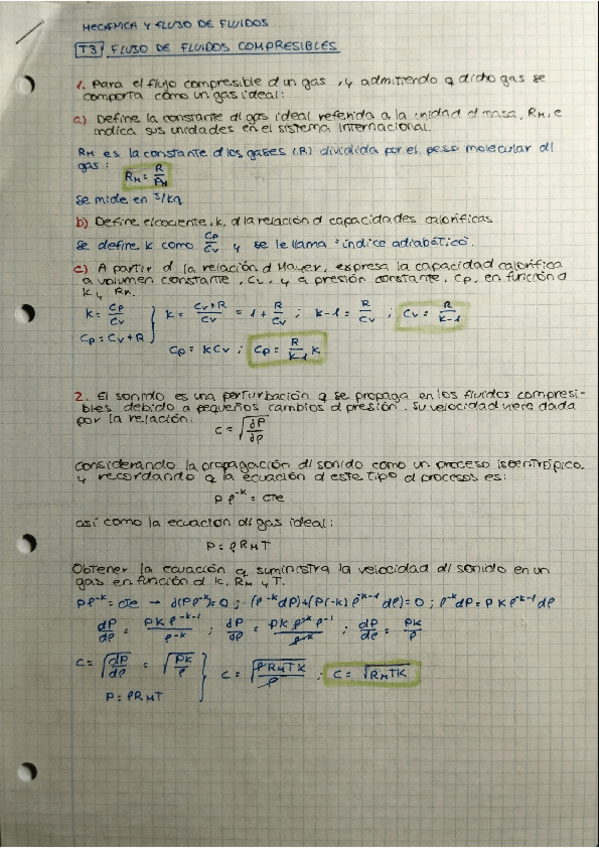 MECÁNICA Y FLUJO DE FLUIDOS
T3 FLUJO DE FLUIDOS COMPRESIBLES
1. Para el flujo compresible d un gas, y admitiendo q dicho gas se
comporta como un gas ideal:
a) Define la constante dl gas ideal referida a la unidad d masa, RM, e
indica sus unidades en el sistema internacional.
RM es la constante d los gases (R) dividida por el peso molecular dl
gas: RM = R/PM
se mide en J/kg
b) Define el cociente, k, d la relación d capacidades caloríficas.
Se define k como Cp/Cv y se le llama "índice adiabático".
c) A partir d la relación d Mayer, expresa la capacidad calorífica
a volumen constante, Cv, y a presión constante, Cp, en función d
k y RM.
k = Cp/Cv } k = (Cv+R)/Cv = 1 + R/Cv ; k-1 = R/Cv ; Cv = R/(k-1)
Cp = Cv+R } Cp = k Cv ; Cp = R/(k-1) k
2. El sonido es una perturbación q se propaga en los fluidos compresi-
bles debido a pequeños cambios d presión. Su velocidad viene dada
por la relación:
c = √(dP/dρ)
considerando la propagación dl sonido como un proceso isoentrópico,
y recordando q la ecuación d este tipo d procesos es:
P ρ^-k = cte
así como la ecuación dl gas ideal:
P = ρ RM T
Obtener la ecuación q suministra la velocidad dl sonido en un
gas en función d k, RM y T.
P ρ^-k = cte → d(P ρ^-k) = 0 ; (ρ^-k dP) + (P(-k) ρ^-k-1 dρ) = 0 ; ρ^-k dP = P k ρ^-k-1 dρ
dP/dρ = P k ρ^-k-1 / ρ^-k ; dP/dρ = P k ρ^-k ρ^-1 / ρ^-k ; dP/dρ = Pk/ρ
c = √(dP/dρ) = √(Pk/ρ) } c = √(ρ RM T k / ρ) ; c = √(RM T k)
P = ρ RM T